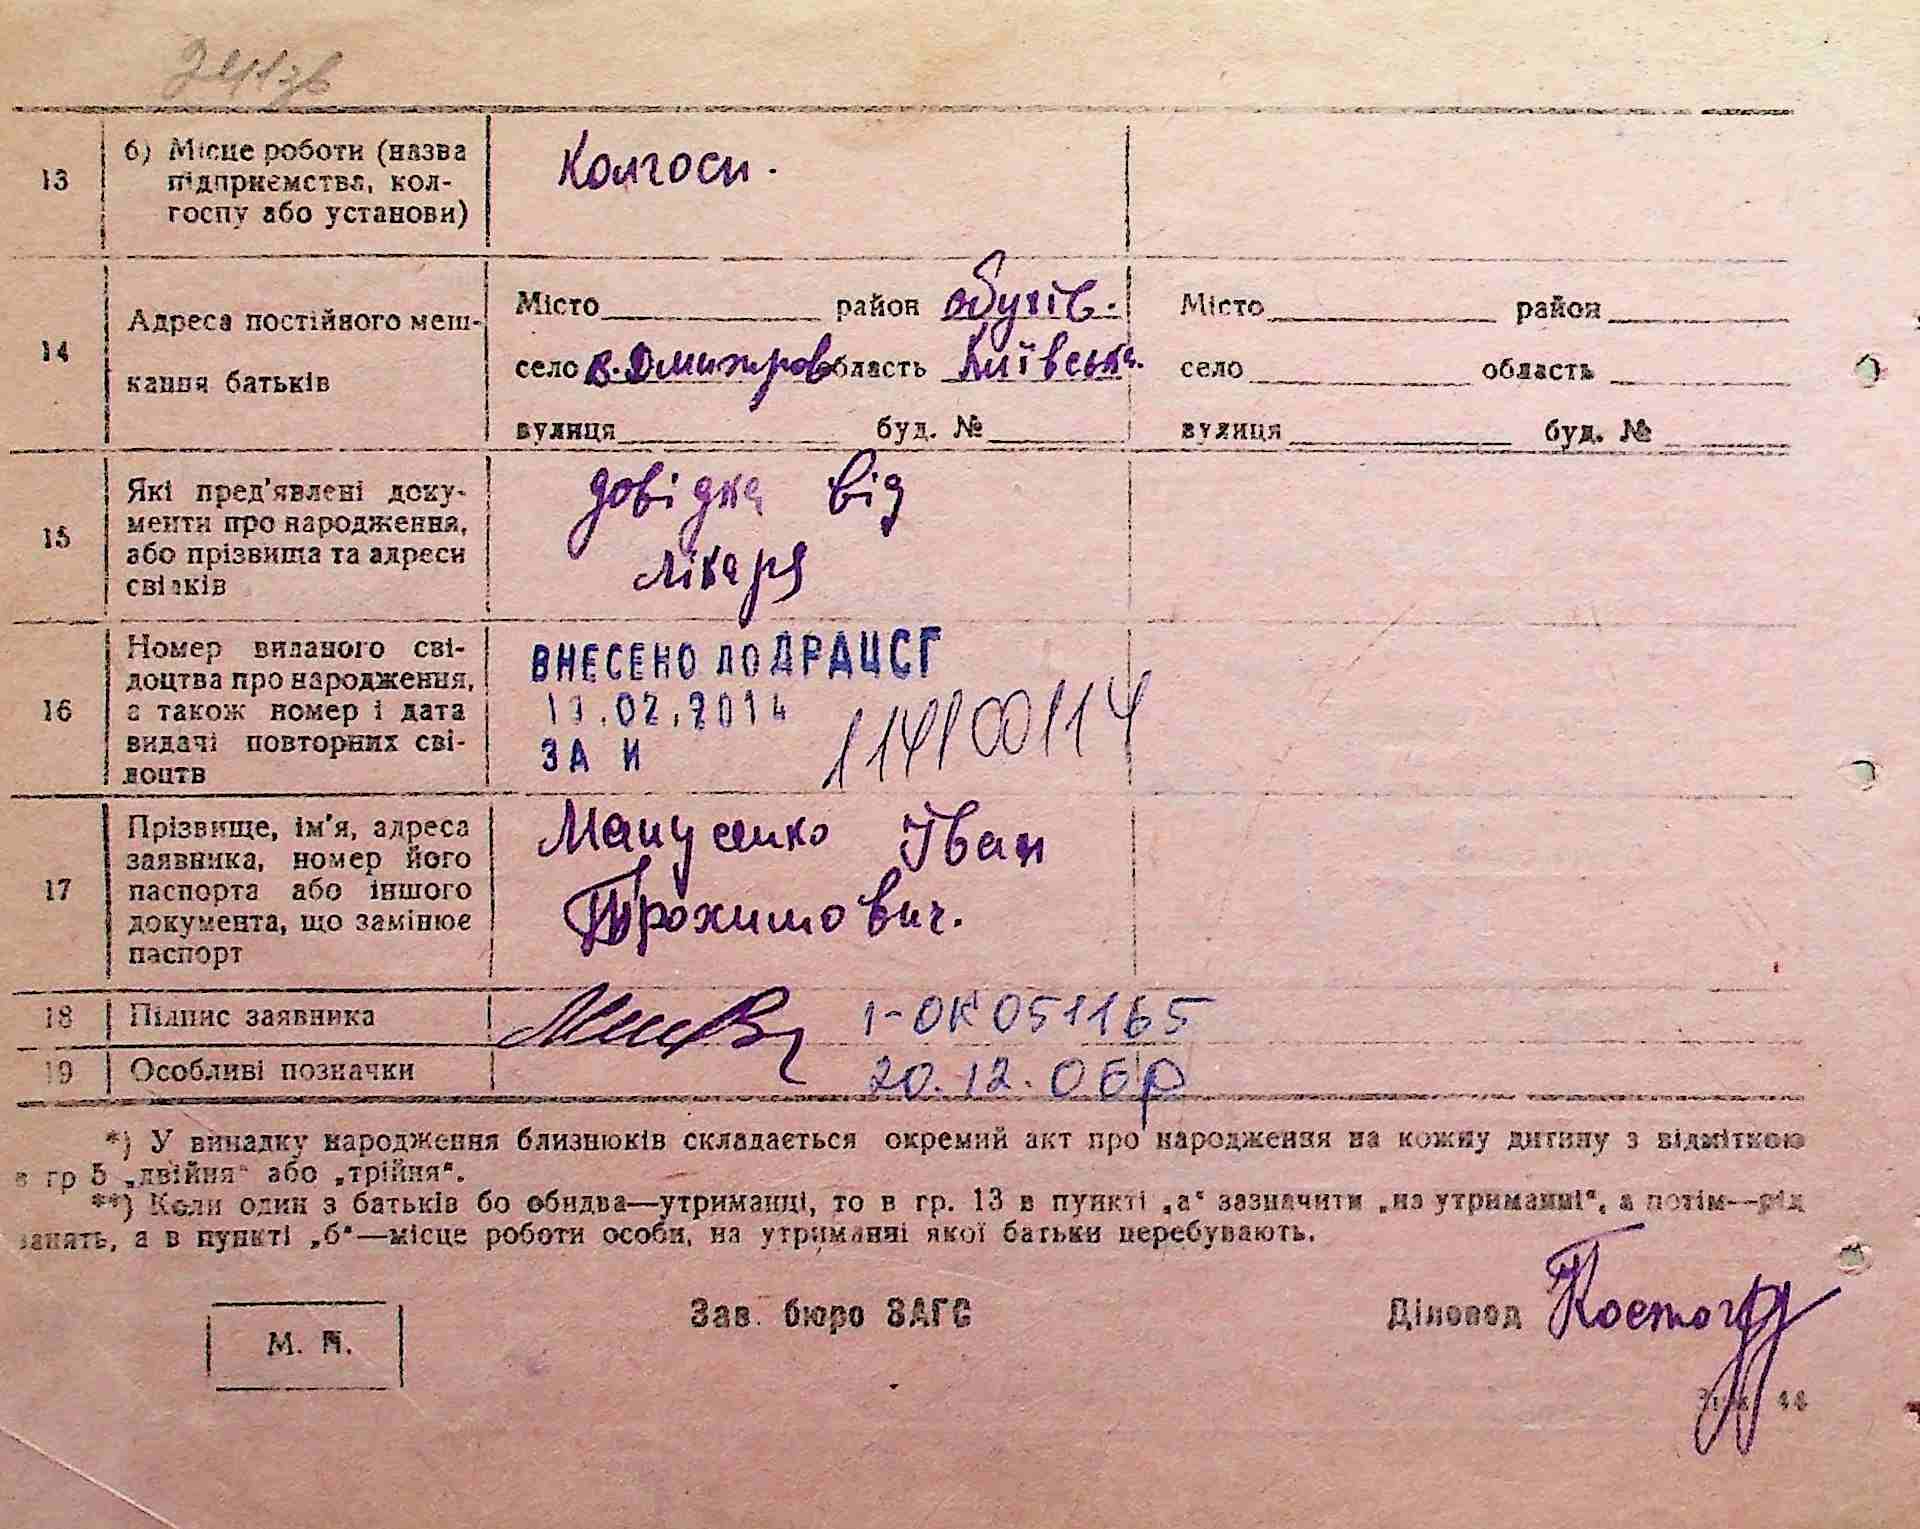 13
б) Місце роботи (назва
підприємства, кол-
госпу або установи)
Колгосп.
14
Адреса постійного меш-
кання батьків
Місто район Обухів.
село В.Дмитров область Київська.
вулиця буд. №
Місто район
село область
вулиця буд. №
15
Які пред'явлені доку-
менти про народження,
або прізвища та адреси
свідків
довідка від
лікаря
16
Номер виданого сві-
доцтва про народження,
а також номер і дата
видачі повторних сві-
доцтв
ВНЕСЕНО ДО ДРАЦСГ
02.2014
ЗА И
114100114
17
Прізвище, ім'я, адреса
заявника, номер його
паспорта або іншого
документа, що замінює
паспорт
Іван
Трохимович.
18
Підпис заявника
1-ОК 051165
19
Особливі позначки
20.12.06р
*) У випадку народження близнюків складається окремий акт про народження на кожну дитину з відміткою
в гр 5 „двійня“ або „трійня“.
**) Коли один з батьків бо обидва—утриманці, то в гр. 13 в пункті „а“ зазначити „на утриманні“, а потім—рід
занять, а в пункті „б“—місце роботи особи, на утриманні якої батьки перебувають.
М. П.
Зав. бюро ЗАГС
Діловод